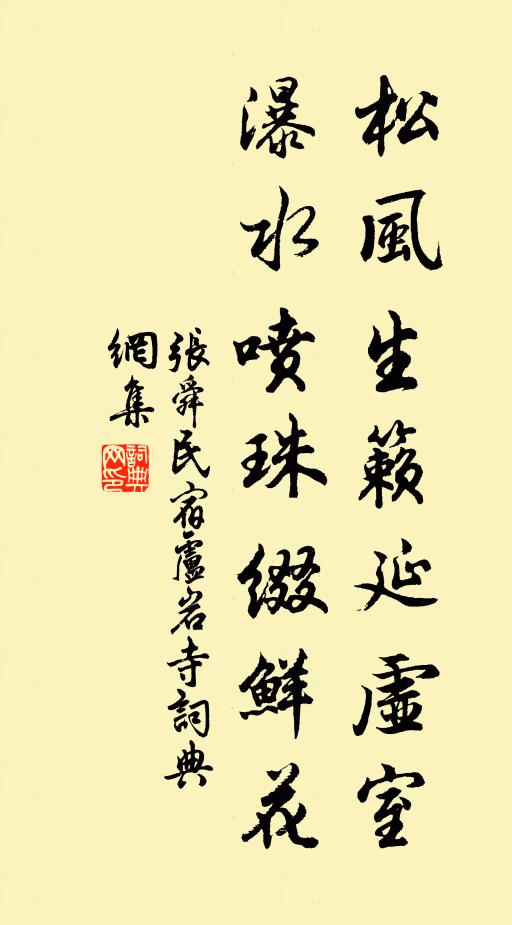 松風生籟延虛室
瀑水噴珠綴鮮花
張舜民宿廬岩寺詞典
網集
詞典
网印